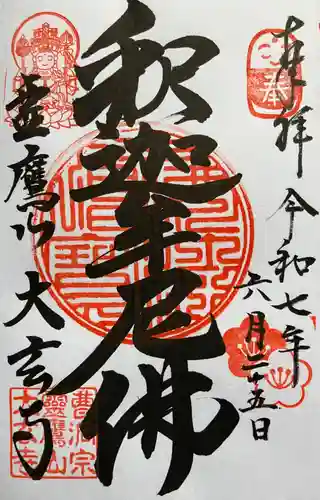 奉拝
令和七年
六月二十五日
釈迦牟尼佛
霊鷹山 大玄寺
奉
曹洞宗
靈鷹山
大玄寺